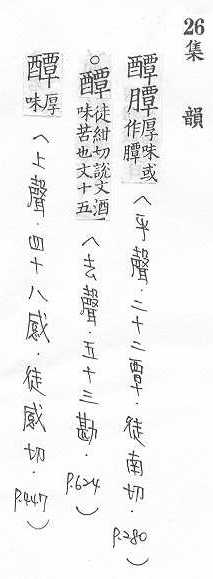 26集 韻
醰䐺厚味或作䐺(平聲．二十二覃．徒南切．P.280)
○醰徒紺切說文酒味苦也文十五(去聲．五十三勘．P.624)
醰厚味(上聲．四十八感．徒感切．P.447)